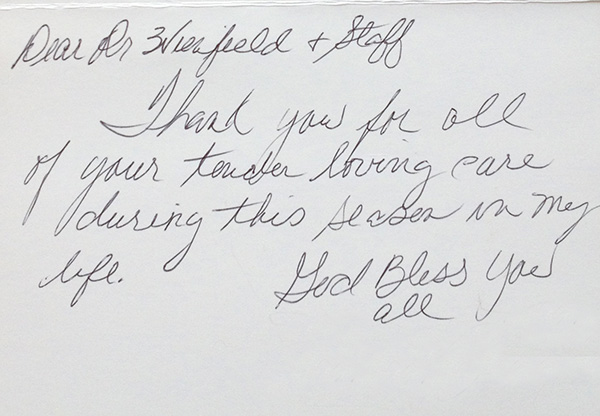 Dear Dr & Staff
Thank you for all
of your tender loving care
during this season in my
life. God Bless You
all